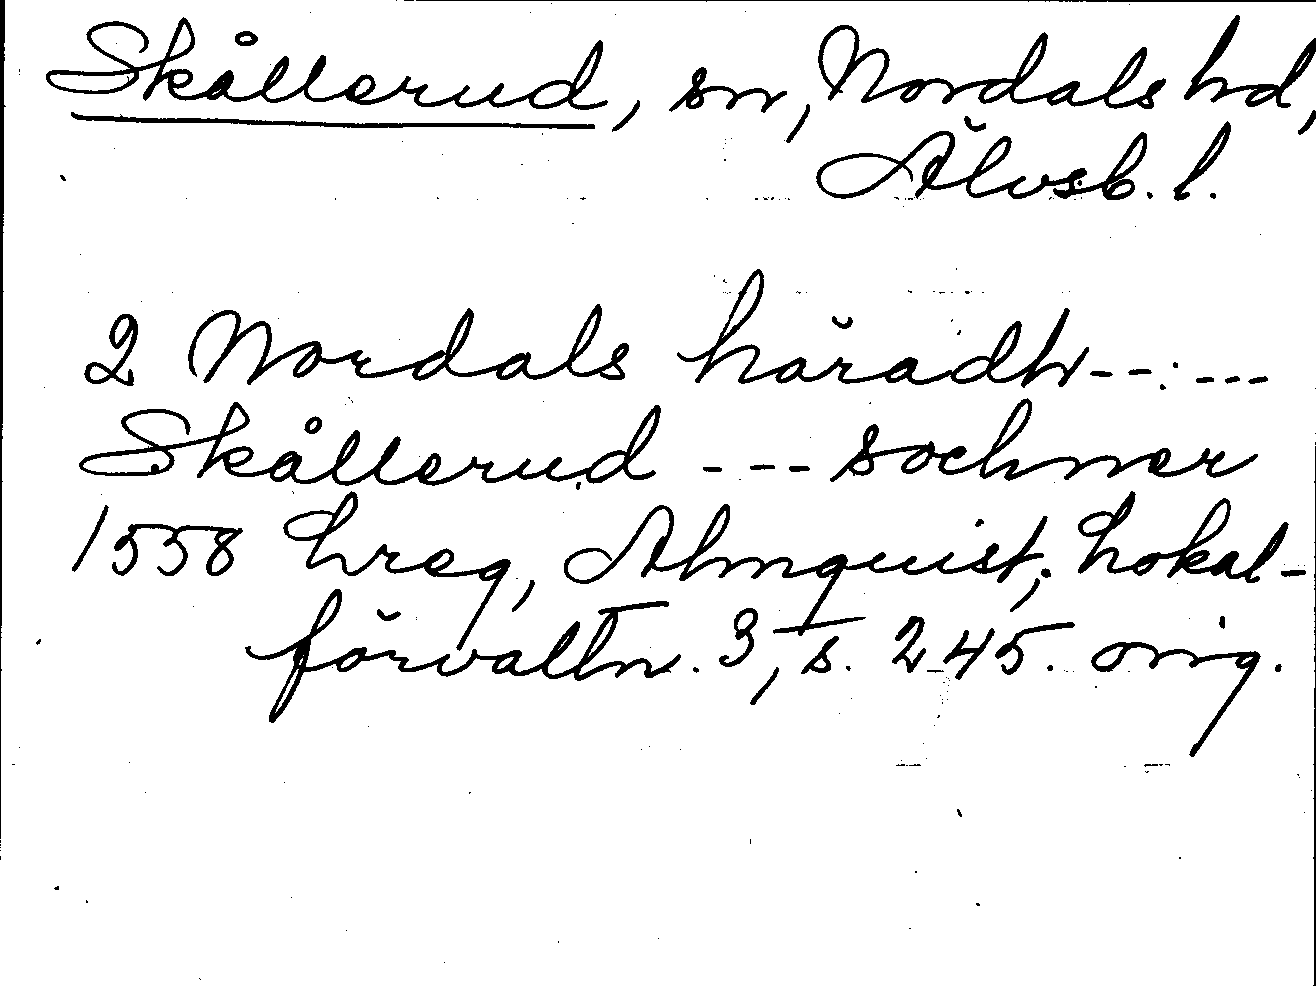 Skållerud, sn, Nordals hd,
Älvsb. l.
2 Nordals häradh -- ---
Skållerud --- sochner
1558 hreg, Almquist, Lokal-
förvaltn. 3, s. 245. orig.